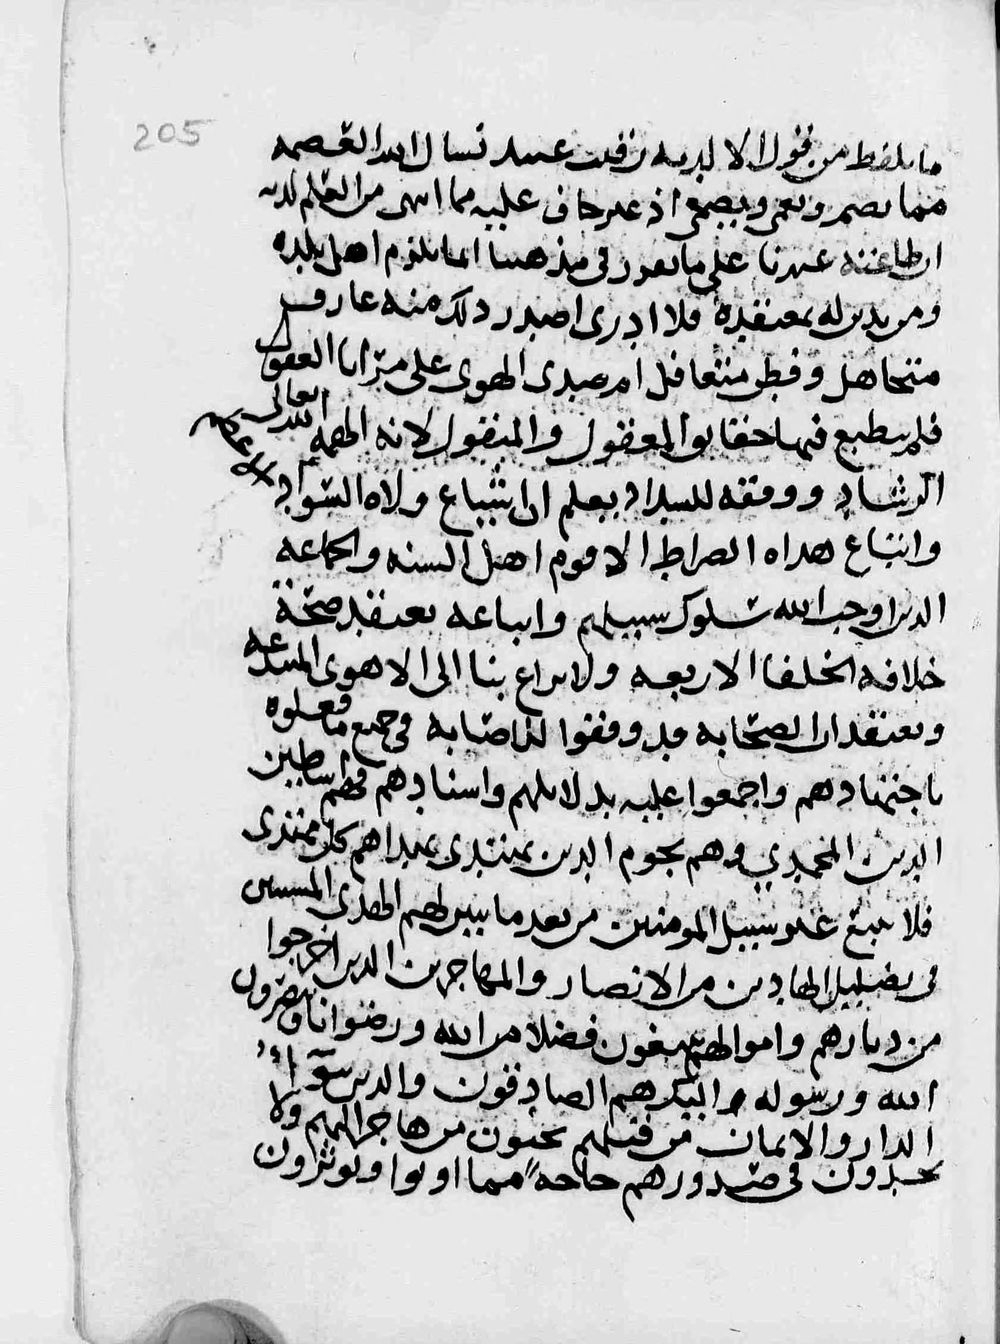 205
ما يلفظ من قول الا لديه رقيب عتيد نسال الله العصمه
مما يصم ويعمي ويصمي اذ غير خاف عليه مما انهى من العلم لديه
ان طاعته غيرنا على ما يعود في مذهبنا انما تلزم اهل بلده
ومن يدين له بمعتقده فلا ادري اصدر ذلك منه عارف
متجاهل وفطن متغافل ام صدى الهوى على مرايا العقول
فلم ينطبع فيها حقايق المعقول والمنقول لانه الهمه الله تعالى
الرشاد ووفقه للسداد يعلم ان اتباع ولاه السواد الاعظم
واتباع هداه الصراط الاقوم اهل السنه والجماعه
الذين اوجب الله سلوك سبيلهم واتباعه يعتقد صحة
خلافه الخلفا الاربعه ولا يراع بنا الى الاهوى المبتدعه
ويعتقد ان الصحابه قد وفقوا للاصابه في جميع ما فعلوه
باجتهادهم واجمعوا عليه بدلايلهم واسنادهم فهم اساطين
الدين المحمدي وهم نجوم الدين يهتدى بهداهم كل مهتدى
فلا نتبع غير سبيل المومنين من بعد ما تبين لهم الهدى المستبين
في تضليل الهادين من الانصار والمهاجرين الذين اخرجوا
من ديارهم واموالهم يبتغون فضلا من الله ورضوانا وينصرون
الله ورسوله اوليك هم الصادقون والذين تبوءوا
الدار والايمان من قبلهم يحبون من هاجر اليهم ولا
يجدون في صدورهم حاجة مما اوتوا ويوثرون